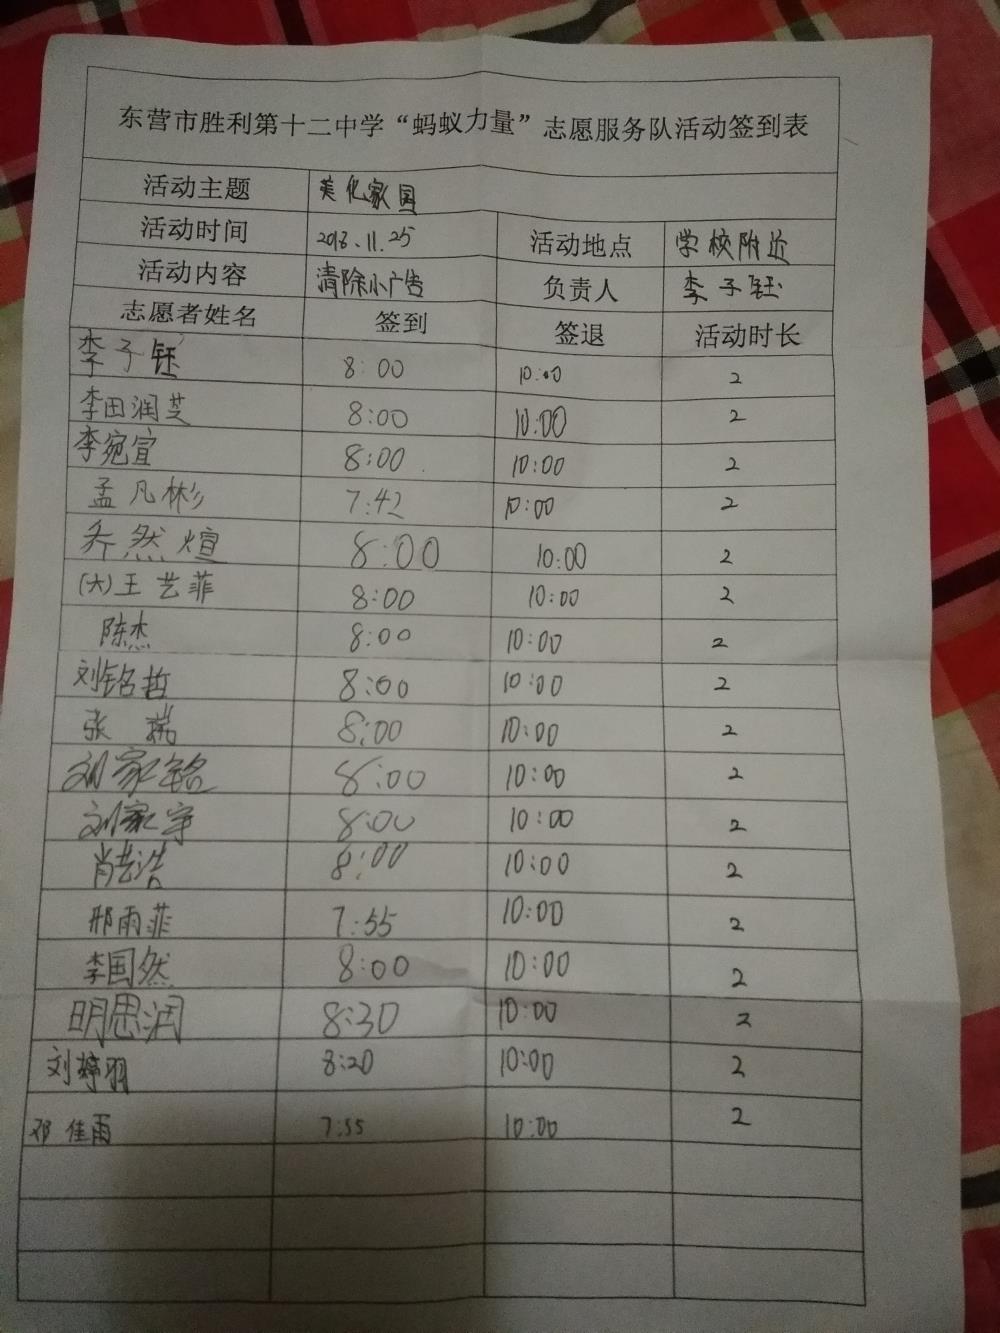 东营市胜利第十二中学“蚂蚁力量”志愿服务队活动签到表
活动主题 美化家园
活动时间 2018.11.25 活动地点 学校附近
活动内容 清除小广告 负责人 李子钰
志愿者姓名 签到 签退 活动时长
李子钰 8:00 10:00 2
李田润芝 8:00 10:00 2
李宛宣 8:00 10:00 2
孟凡彬 7:42 10:00 2
乔然煊 8:00 10:00 2
(大)王艺菲 8:00 10:00 2
陈杰 8:00 10:00 2
刘铭哲 8:00 10:00 2
张瑞 8:00 10:00 2
刘家铭 8:00 10:00 2
刘家宇 8:00 10:00 2
肖艺浩 8:00 10:00 2
邢雨菲 7:55 10:00 2
李国然 8:00 10:00 2
明思润 8:30 10:00 2
刘婷羽 8:20 10:00 2
邓佳雨 7:55 10:00 2